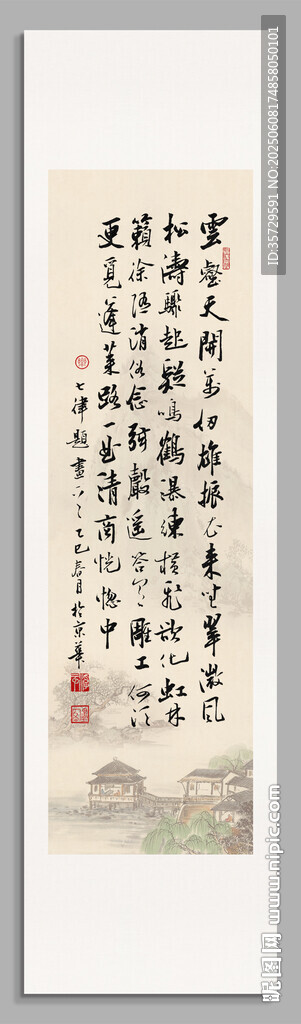 雲壑天開萬仞雄振衣來坐翠微風
松濤驟起疑鳴鶴瀑練橫飛欲化虹林
籟徐消俗念聲遥答雕工何須
更覓蓬萊路一曲清商恍惚中
七律題畫乙巳春月於京華
ID:35729591 NO:20250608174858050101
昵图网 www.nipic.com